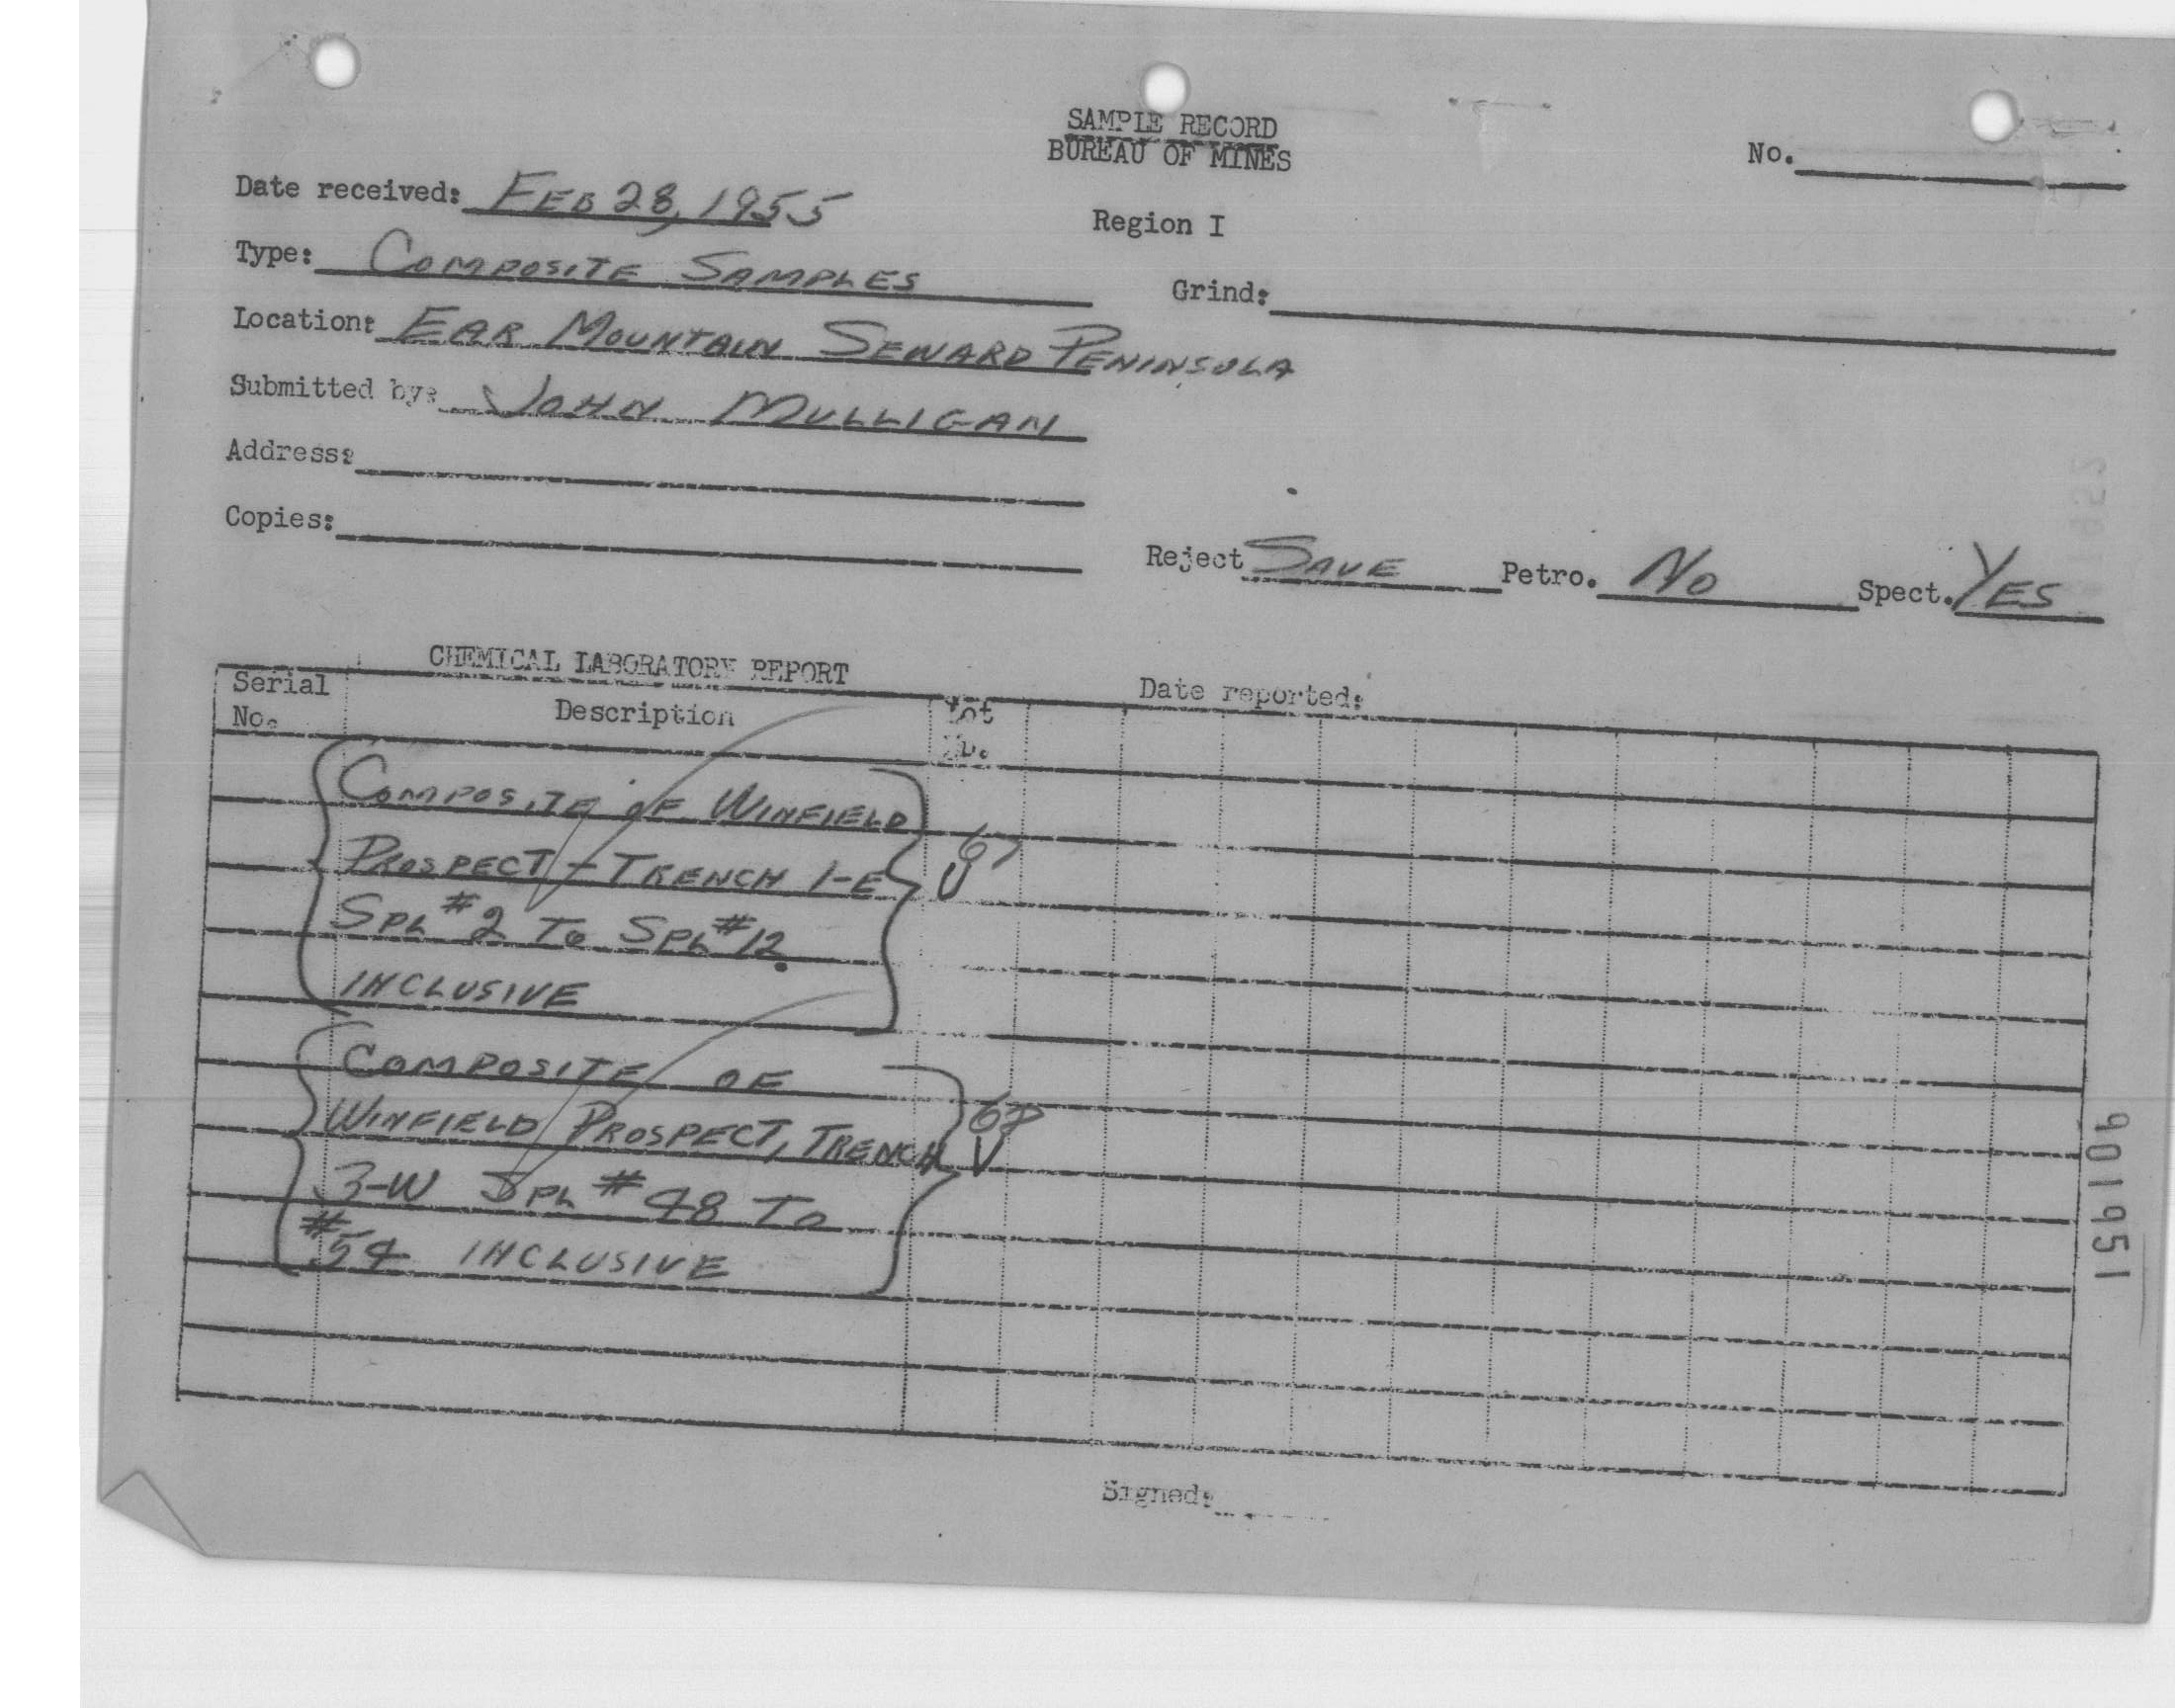 SAMPLE RECORD
BUREAU OF MINES
No.
Date received: FEB 28, 1955
Region I
Type: COMPOSITE SAMPLES
Grind:
Location: EAR MOUNTAIN SEWARD PENINSULA
Submitted by: JOHN MULLIGAN
Address:
Copies:
Reject SAVE Petro. NO Spect. YES
CHEMICAL LABORATORY REPORT
Date reported:
Serial No.
Description
Lot
COMPOSITE OF WINFIELD
PROSPECT - TRENCH 1-E
67
SPL #2 TO SPL #12
INCLUSIVE
COMPOSITE OF
WINFIELD PROSPECT, TRENCH
68
3-W SPL #48 TO
#54 INCLUSIVE
901951
Signed: